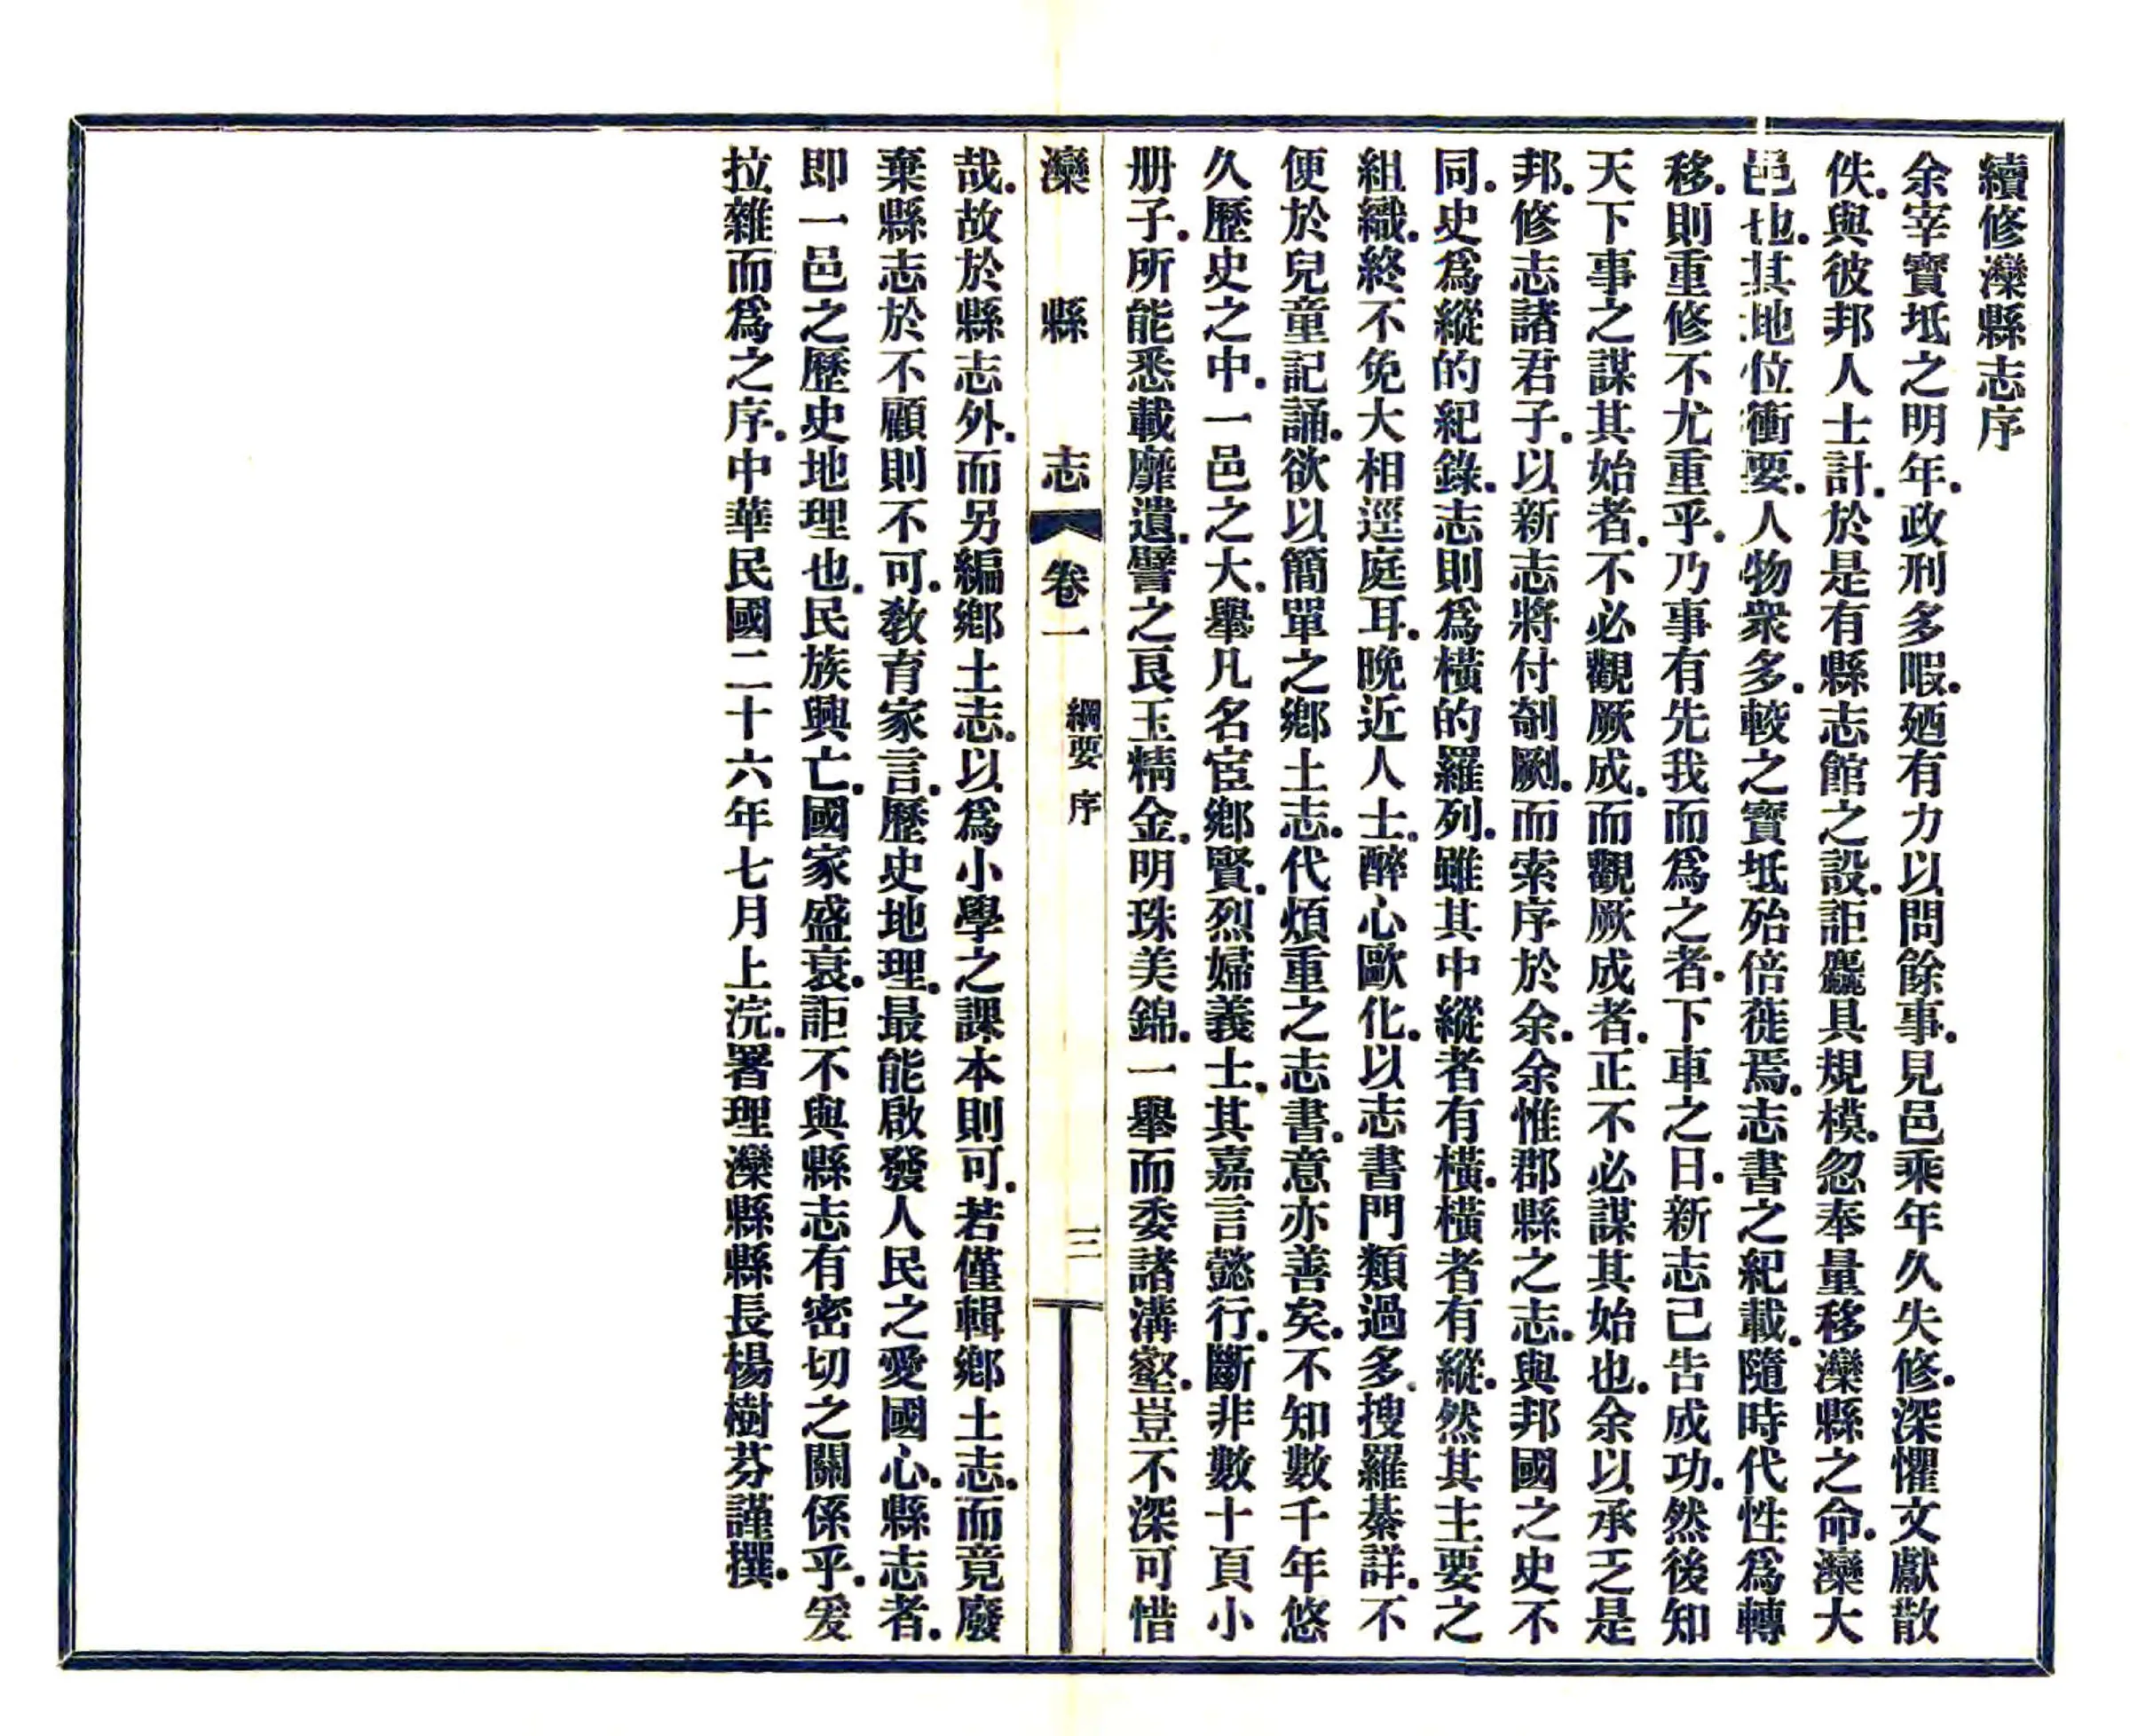 續修灤縣志序
余宰寶坻之明年．政刑多暇．廼有力以問餘事．見邑乘年久失修．深懼文獻散
佚．與彼邦人士計．於是有縣志館之設．詎麤具規模．忽奉量移灤縣之命．灤大
邑也．其地位衝要．人物衆多．較之寶坻殆倍蓰焉．志書之紀載．隨時代性爲轉
移．則重修不尤重乎．乃事有先我而爲之者．下車之日．新志已告成功．然後知
天下事之謀其始者．不必觀厥成．而觀厥成者．正不必謀其始也．余以承乏是
邦．修志諸君子．以新志將付剞劂．而索序於余．余惟郡縣之志．與邦國之史不
同．史爲縱的紀錄．志則爲橫的羅列．雖其中縱者有橫．橫者有縱．然其主要之
組織．終不免大相逕庭耳．晚近人士．醉心歐化．以志書門類過多．搜羅綦詳．不
便於兒童記誦．欲以簡單之鄉土志．代煩重之志書．意亦善矣．不知數千年悠
久歷史之中．一邑之大．舉凡名宦鄉賢．烈婦義士．其嘉言懿行．斷非數十頁小
册子．所能悉載靡遺．譬之良玉精金．明珠美錦．一舉而委諸溝壑．豈不深可惜
灤縣志 卷一 綱要 序 三
哉．故於縣志外．而另編鄉土志．以爲小學之課本則可．若僅輯鄉土志．而竟廢
棄縣志於不顧則不可．敎育家言．歷史地理．最能啟發人民之愛國心．縣志者．
即一邑之歷史地理也．民族興亡．國家盛衰．詎不與縣志有密切之關係乎．爰
拉雜而爲之序．中華民國二十六年七月上浣．署理灤縣縣長楊樹芬謹撰．